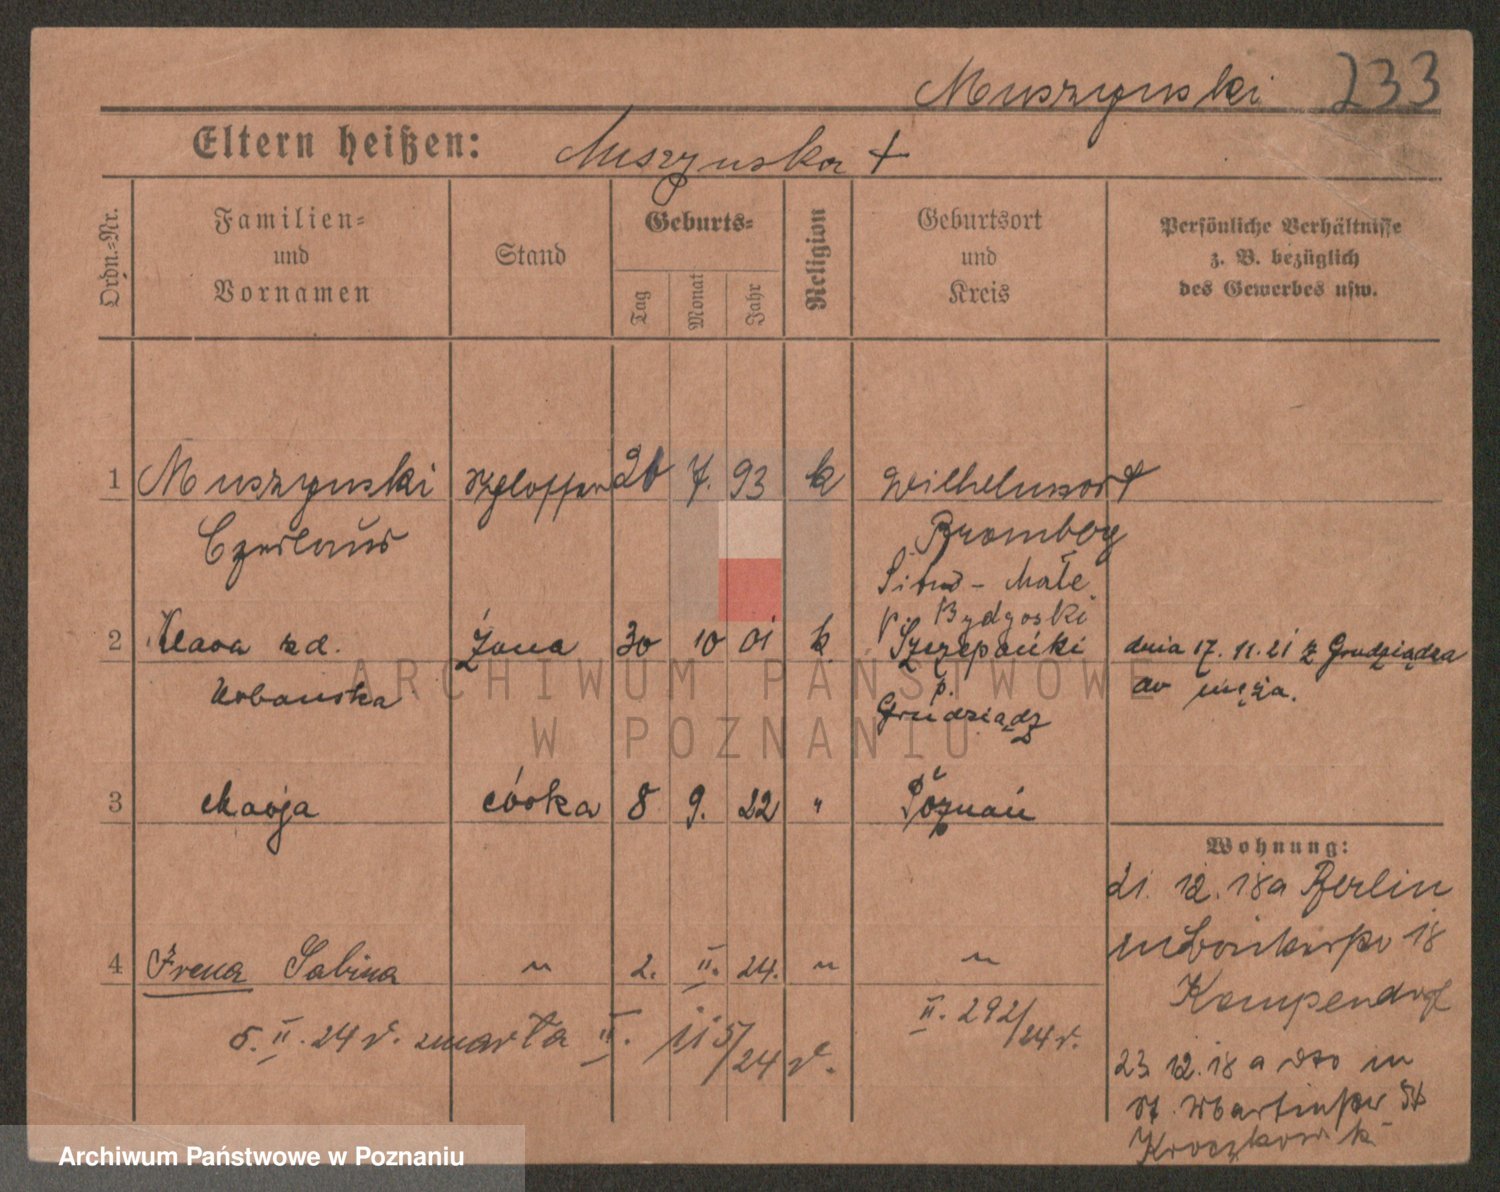 Muszynski 233
Eltern heißen: Muszynska +
Ordn.-Nr.
Familien-
und
Vornamen
Stand
Geburts-
Tag
Monat
Jahr
Religion
Geburtsort
und
Kreis
Persönliche Verhältnisse
z. B. bezüglich
des Gewerbes usw.
1 Muszynski 26 7. 93 k Wilhelmsort
Czeslaus Bromberg
Sitno - Małe
p. Bydgoski
2 Klara zd. Żona 30 10 01 k Szczepanki dnia 17. 11. 21 z Grudziądza
Urbanska p. do męża.
Grudziądz
3 Marja córka 8 9. 22 " Poznań
Wohnung:
21. 12. 18 a Berlin
18
4 Irena Sabina " 2. II. 24. " "
Kempendorf
5. II. 24 r. zmarła II. 115/24 r. II. 292/24 r.
23 12. 18 a dto in
St. Martinstr
ARCHIWUM PAŃSTWOWE
W POZNANIU
Archiwum Państwowe w Poznaniu